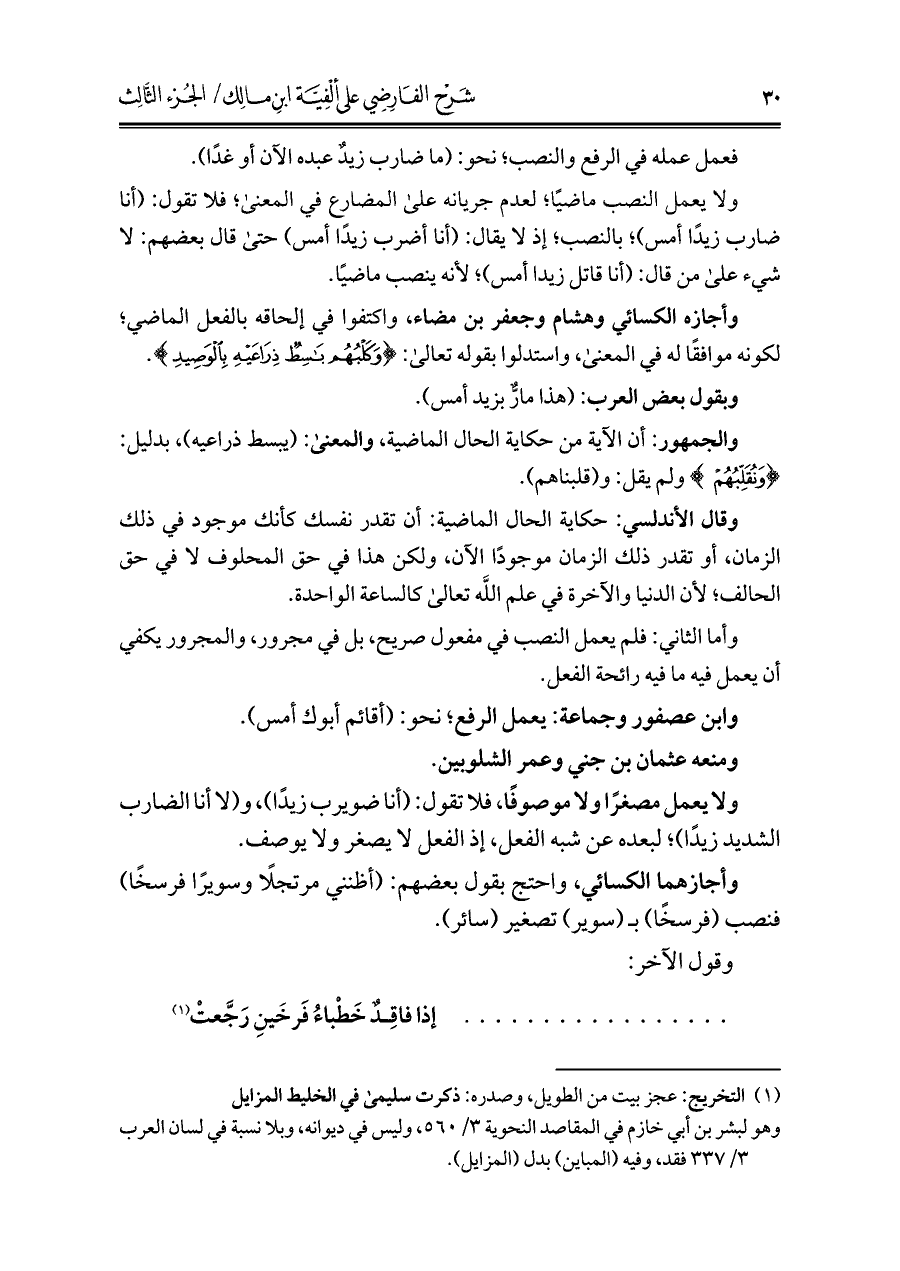 ٣٠ شَرْح الفَارِضِي على ألْفِيَّة ابنِ مالِك/ الجُزء الثَّالِث
فعمل عمله في الرفع والنصب؛ نحو: (ما ضارب زيدٌ عبده الآن أو غدًا).
ولا يعمل النصب ماضيًا؛ لعدم جريانه علىٰ المضارع في المعنىٰ؛ فلا تقول: (أنا
ضارب زيدًا أمس)؛ بالنصب؛ إذ لا يقال: (أنا أضرب زيدًا أمس) حتىٰ قال بعضهم: لا
شيء علىٰ من قال: (أنا قاتل زيدا أمس)؛ لأنه ينصب ماضيًا.
وأجازه الكسائي وهشام وجعفر بن مضاء، واكتفوا في إلحاقه بالفعل الماضي؛
لكونه موافقًا له في المعنىٰ، واستدلوا بقوله تعالىٰ: ﴿وَكَلْبُهُم بَٰسِطٌ ذِرَاعَيْهِ بِالْوَصِيدِ﴾.
وبقول بعض العرب: (هذا مارٌّ بزيد أمس).
والجمهور: أن الآية من حكاية الحال الماضية، والمعنىٰ: (يبسط ذراعيه)، بدليل:
﴿وَنُقَلِّبُهُمْ﴾ ولم يقل: و(قلبناهم).
وقال الأندلسي: حكاية الحال الماضية: أن تقدر نفسك كأنك موجود في ذلك
الزمان، أو تقدر ذلك الزمان موجودًا الآن، ولكن هذا في حق المحلوف لا في حق
الحالف؛ لأن الدنيا والآخرة في علم اللَّه تعالىٰ كالساعة الواحدة.
وأما الثاني: فلم يعمل النصب في مفعول صريح، بل في مجرور، والمجرور يكفي
أن يعمل فيه ما فيه رائحة الفعل.
وابن عصفور وجماعة: يعمل الرفع؛ نحو: (أقائم أبوك أمس).
ومنعه عثمان بن جني وعمر الشلوبين.
ولا يعمل مصغرًا ولا موصوفًا، فلا تقول: (أنا ضويرب زيدًا)، و(لا أنا الضارب
الشديد زيدًا)؛ لبعده عن شبه الفعل، إذ الفعل لا يصغر ولا يوصف.
وأجازهما الكسائي، واحتج بقول بعضهم: (أظنني مرتجلًا وسويرًا فرسخًا)
فنصب (فرسخًا) بـ (سوير) تصغير (سائر).
وقول الآخر:
. . . . . . . . . . . . . . . . . إذا فاقِدٌ خَطْباءُ فَرخَينِ رَجَّعتْ(١)
(١) التخريج: عجز بيت من الطويل، وصدره: ذكرت سليمىٰ في الخليط المزايل
وهو لبشر بن أبي خازم في المقاصد النحوية ٣/ ٥٦٠، وليس في ديوانه، وبلا نسبة في لسان العرب
٣/ ٣٣٧ فقد، وفيه (المباين) بدل (المزايل).